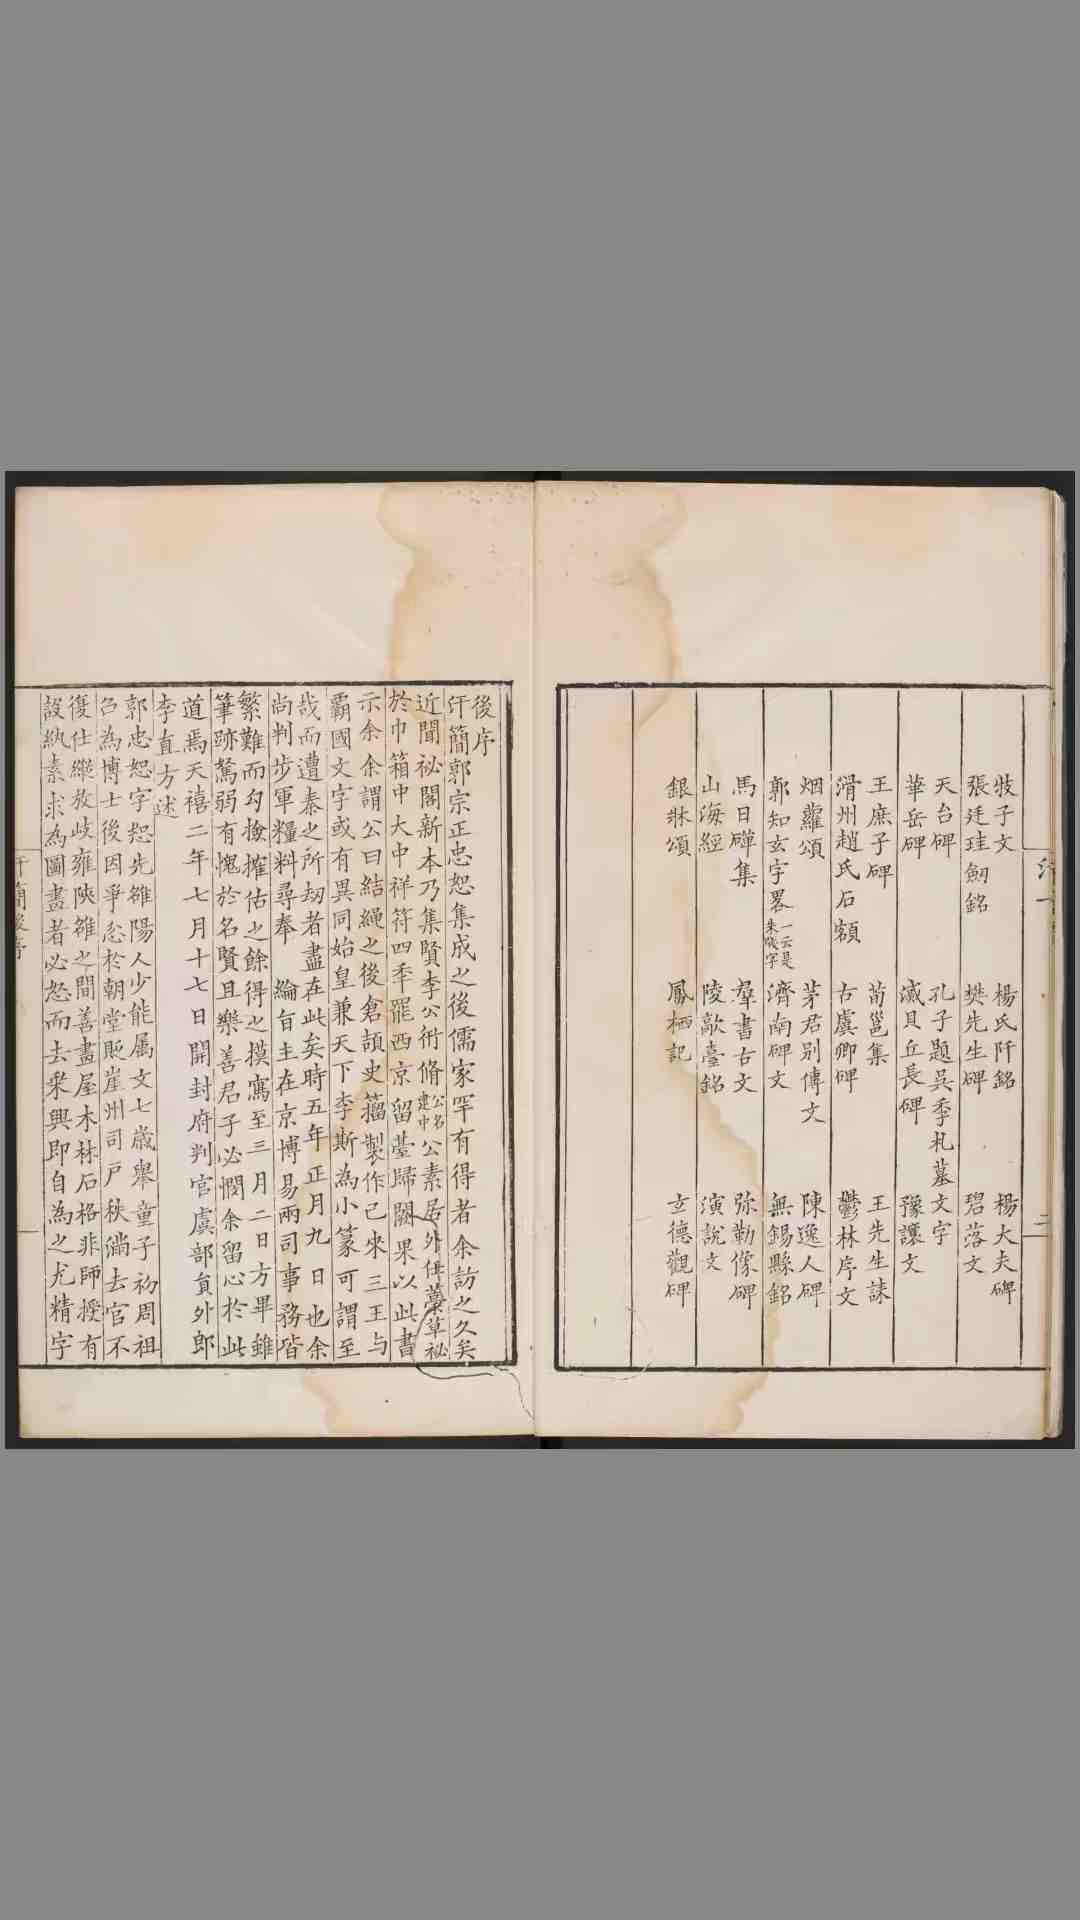 牧子文　楊氏阡銘　楊大夫碑
張廷珪劒銘　樊先生碑　碧落文
天台碑　孔子題吳季札墓文字
華岳碑　滅貝丘長碑　豫讓文
王庶子碑　荀邕集　王先生誄
滑州趙氏石額　古虞卿碑　鬱林序文
烟蘿頌　茅君别傳文　陳逸人碑
郭知玄字畧一云是朱牋字　濟南碑文　無錫縣銘
馬日磾集　羣書古文　弥勒像碑
山海經　陵歊臺銘　演說文
銀牀頌　鳳栖記　玄德觀碑
二
後序
汗簡郭宗正忠恕集成之後儒家罕有得者余訪之久矣
近聞祕閣新本乃集賢李公衎脩公名建中公素居外任藁草祕
於巾箱中大中祥符四年罷西京留臺歸闕果以此書
示余余謂公曰結繩之後倉頡史籀製作已來三王与
霸國文字或有異同始皇兼天下李斯為小篆可謂至
哉而遭秦之所劫者盡在此矣時五年正月九日也余
尚判步軍糧料尋奉　綸旨主在京博易兩司事務皆
繁難而勾撿搉估之餘得之摸寫至三月二日方畢雖
筆跡駑弱有愧於名賢且樂善君子必憫余留心於此
道焉天禧二年七月十七日開封府判官虞部員外郎
李直方述
郭忠恕字恕先雒陽人少能属文七歲舉童子初周祖
召為博士後因爭忿於朝堂貶崖州司户秩滿去官不
復仕縱放歧雍陝雒之間善畫屋木林石格非師授有
設紈素求為圖畫者必怒而去乘興即自為之尤精字
汗簡後序
一